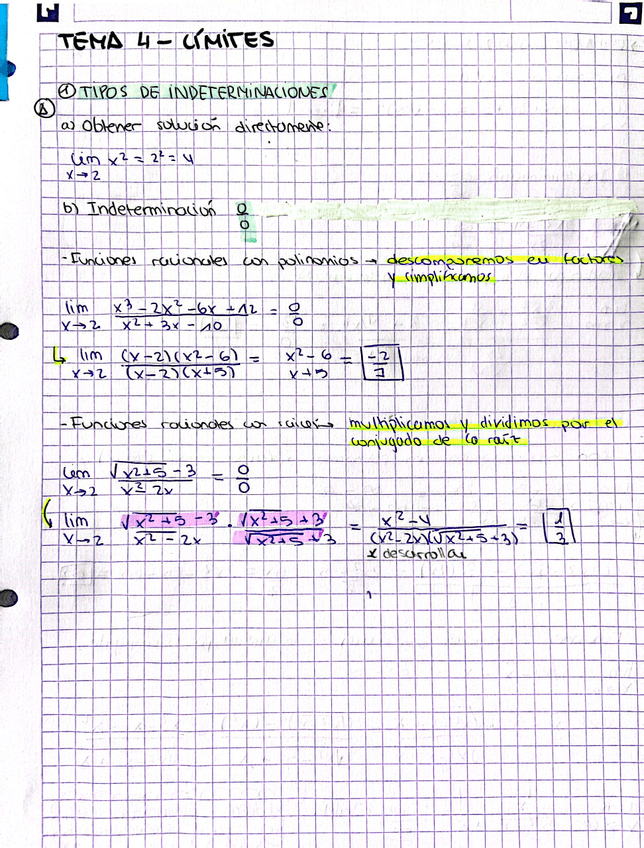 TEMA 4 - LÍMITES
① TIPOS DE INDETERMINACIONES
a) Obtener solución directamente:
lim x→2 x² = 2² = 4
b) Indeterminación 0/0
- Funciones racionales con polinomios → descomponemos en factores
y simplificamos
lim x→2 (x³ - 2x² - 6x + 12)/(x² + 3x - 10) = 0/0
↳ lim x→2 (x-2)(x²-6)/(x-2)(x+5) = (x²-6)/(x+5) = -2/7
- Funciones racionales con raíces → multiplicamos y dividimos por el
conjugado de la raíz
lim x→2 (√x²+5 - 3)/(x² - 2x) = 0/0
lim x→2 (√x²+5 - 3)/(x² - 2x) · (√x²+5 + 3)/(√x²+5 + 3) = (x² - 4)/(x²-2x)(√x²+5+3) = 1/3
x desarrollar